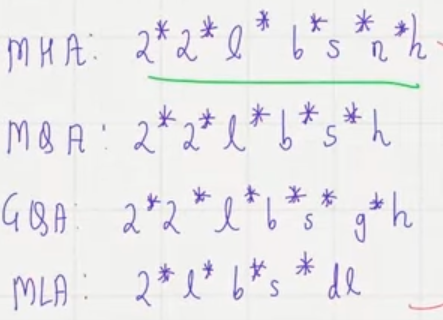 MHA: 2*2*l*b*s*n*h
MQA: 2*2*l*b*s*h
GQA: 2*2*l*b*s*g*h
MLA: 2*l*b*s*dl